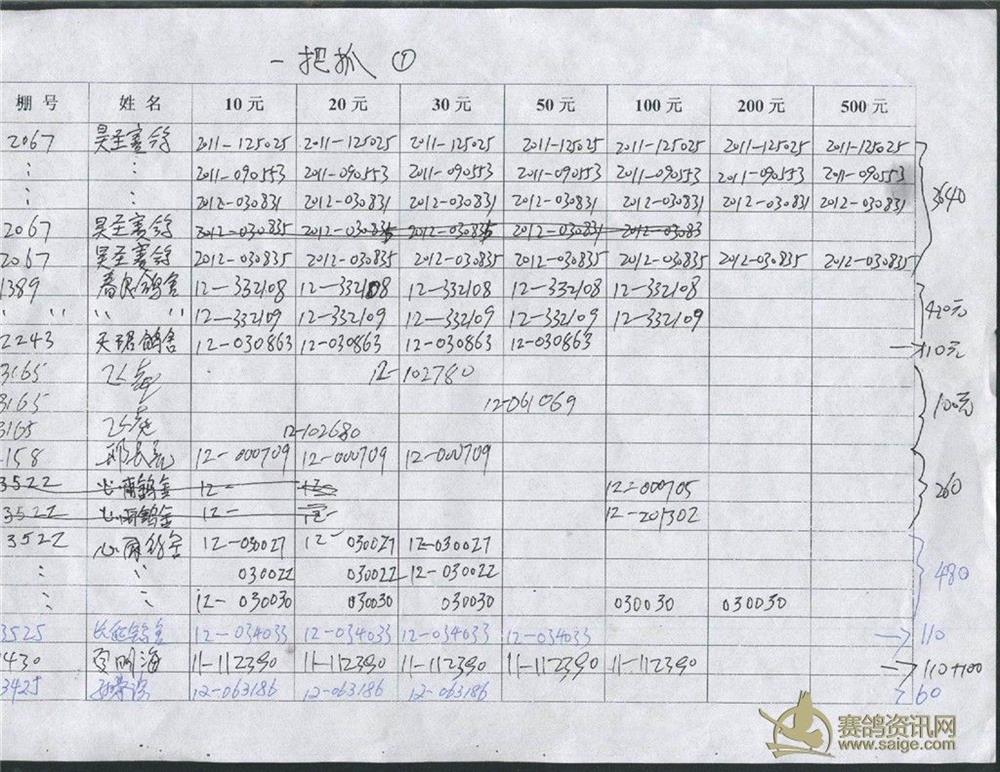 一把抓 ①
棚号 姓名 10元 20元 30元 50元 100元 200元 500元
2067 昊圣赛鸽 2011-125025 2011-125025 2011-125025 2011-125025 2011-125025 2011-125025 2011-125025
: : 2011-090553 2011-090553 2011-090553 2011-090553 2011-090553 2011-090553 2011-090553
: : 2012-030831 2012-030831 2012-030831 2012-030831 2012-030831 2012-030831 2012-030831 3640
2067 昊圣赛鸽 2012-030835 2012-030835 2012-030835 2012-030831 2012-03083
2067 昊圣赛鸽 2012-030835 2012-030835 2012-030835 2012-030835 2012-030835 2012-030835 2012-030835
1389 鸽舍 12-332108 12-332108 12-332108 12-332108 12-332108
" " " " 12-332109 12-332109 12-332109 12-332109 12-332109 420元
2243 天珺鸽舍 12-030863 12-030863 12-030863 12-030863 110元
3165 12-102780
3165 12-061069 100元
3165 12-102680
158 12-000709 12-000709 12-000709
3522 心雨鸽舍 12- 12-000705 260
3522 心雨鸽舍 12- 12- 12-201302
3522 心雨鸽舍 12-030027 12-030027 12-030027
: : 030022 030022 12-030022 480
: : 12-030030 030030 030030 030030 030030
3525 鸽舍 12-034033 12-034033 12-034033 12-034033 110
430 明海 11-112390 11-112390 11-112390 11-112390 11-112390 110+100
3425 12-063186 12-063186 12-063186 60
赛鸽资讯网
www.saige.com